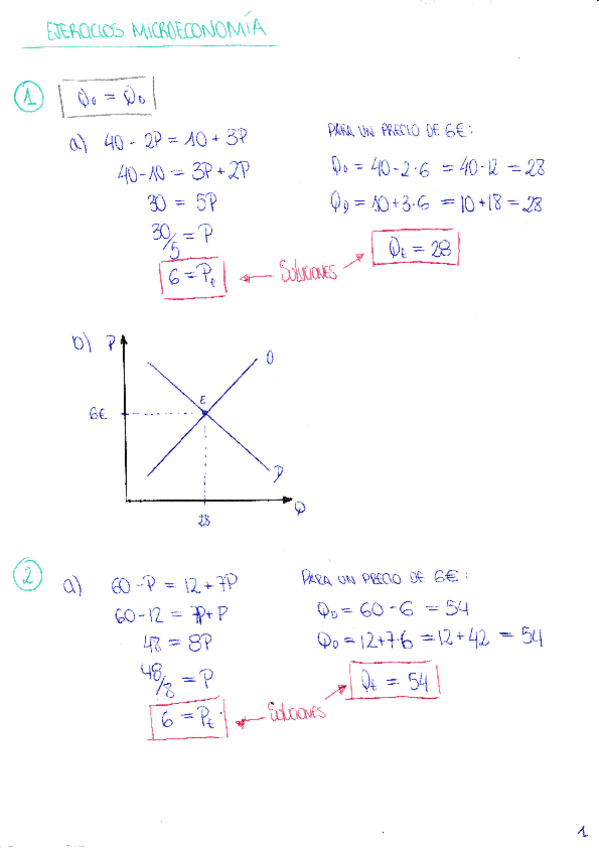 EJERCICIOS MICROECONOMÍA
1 Qo = QD
a) 40 - 2P = 10 + 3P
40 - 10 = 3P + 2P
30 = 5P
30/5 = P
6 = Pε
PARA UN PRECIO DE 6€:
Qo = 40 - 2·6 = 40 - 12 = 28
QD = 10 + 3·6 = 10 + 18 = 28
Qε = 28
SOLUCIONES
b) P
O
E
6€
D
28
Q
2 a) 60 - P = 12 + 7P
60 - 12 = 7P + P
48 = 8P
48/8 = P
6 = Pε
PARA UN PRECIO DE 6€:
QD = 60 - 6 = 54
QO = 12 + 7·6 = 12 + 42 = 54
Qε = 54
SOLUCIONES
1